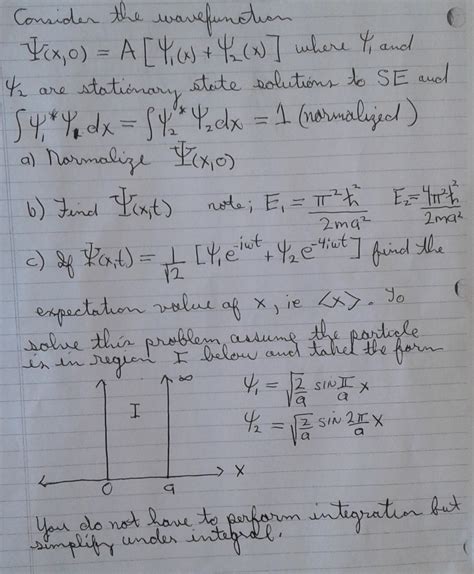 Consider the wavefunction
Ψ(x,0) = A [ψ₁(x) + ψ₂(x)] where ψ₁ and
ψ₂ are stationary state solutions to SE and
∫ψ₁*ψ₁dx = ∫ψ₂*ψ₂dx = 1 (normalized)
a) Normalize Ψ(x,0)
b) Find Ψ(x,t) note; E₁ = π²ħ²/2ma² E₂ = 4π²ħ²/2ma²
c) If Ψ(x,t) = 1/√2 [ψ₁e^-iωt + ψ₂e^-4iωt] find the
expectation value of x, ie <x>. To
solve this problem, assume the particle
is in region I below and takes the form
∞ ψ₁ = √(2/a) sin π/a x
I
ψ₂ = √(2/a) sin 2π/a x
x
0 a
You do not have to perform integration but
simplify under integral.